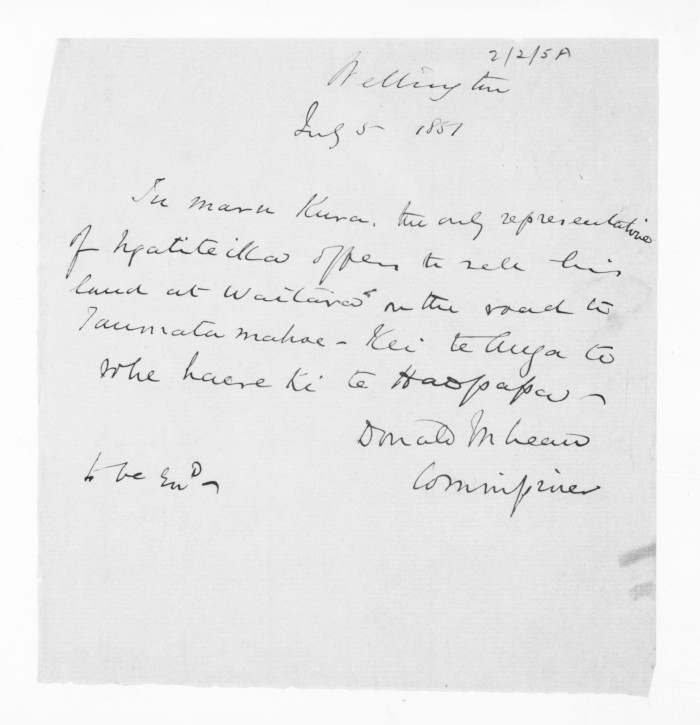 2/2/58
Wellington
July 5 1851
Tu maru Kura. the only representative
of Ngatiteika offers to sell his
land at Waitara on the road to
Taumatamahoe - Kei te Anga to
rohe haere Ki te Haopapa -
Donald McLean
Commissioner
to be End